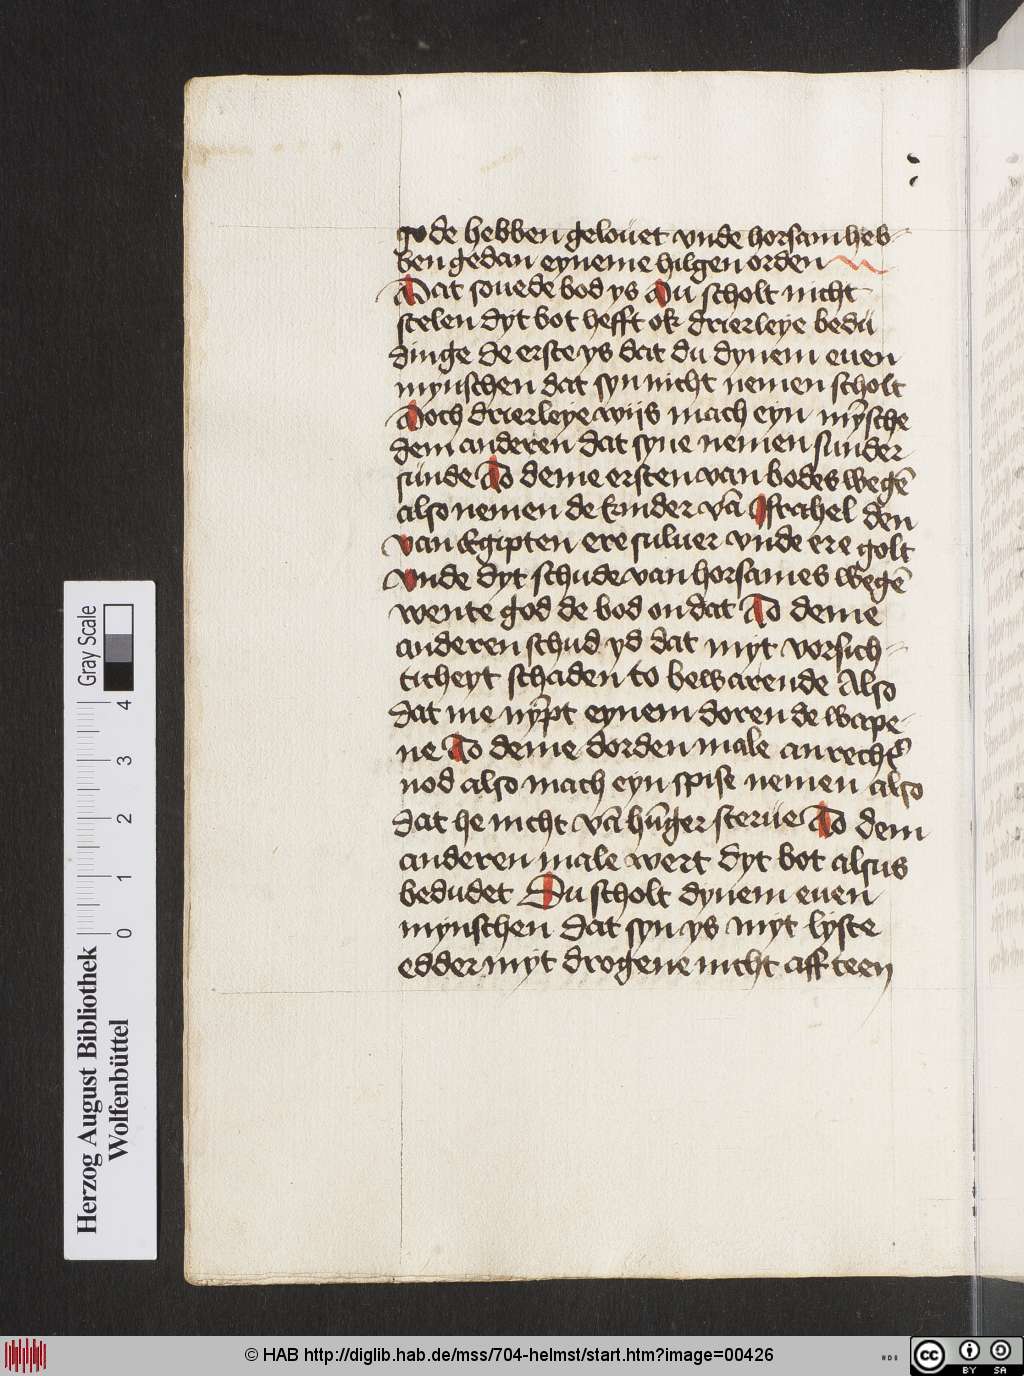 gode hebben gelouet vnde horsam heb-
ben gedan eyneme hilgen orden
Dat souede bod ys Du scholt nicht
stelen dyt bot hefft ok drierleye bedu
dinge de erste ys dat du dynem euen
mynschen dat syn nicht nemen scholt
Doch drierleye wijs mach eyn mȳsche
dem anderen dat syne nemen sunder
sunde To deme ersten van bodes wegē
also nemen de kinder vā Israhel den
van Egipten ere suluer vnde ere golt
vnde dyt schude van horsames wegē
wente god de bod on dat To deme
anderen schud yd dat myt vorsich-
ticheyt schaden to bewarende Also
dat me nympt eynem doren de wape-
ne To deme dorden male an recht
nod also mach eyn spise nemen also
dat he nicht vā hūger sterue To dem
anderen male wert dyt bot alsus
bedudet Du scholt dynem euen
mynschen dat syn ys myt lyste
edder myt drogene nicht aff teen
Herzog August Bibliothek
Wolfenbüttel
0 1 2 3 4
Gray Scale
© HAB http://diglib.hab.de/mss/704-helmst/start.htm?image=00426
HAB
cc BY SA